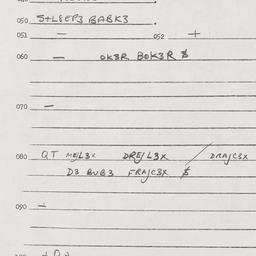 050 S+LEEP3 BABK3 .
051 — 052 +
060 — OK3R BOK3R $
070 —
080 QT ME/L3X DRE/L3X / DRA/C3X
D3 BUB3 FRA/C3X $
090 —